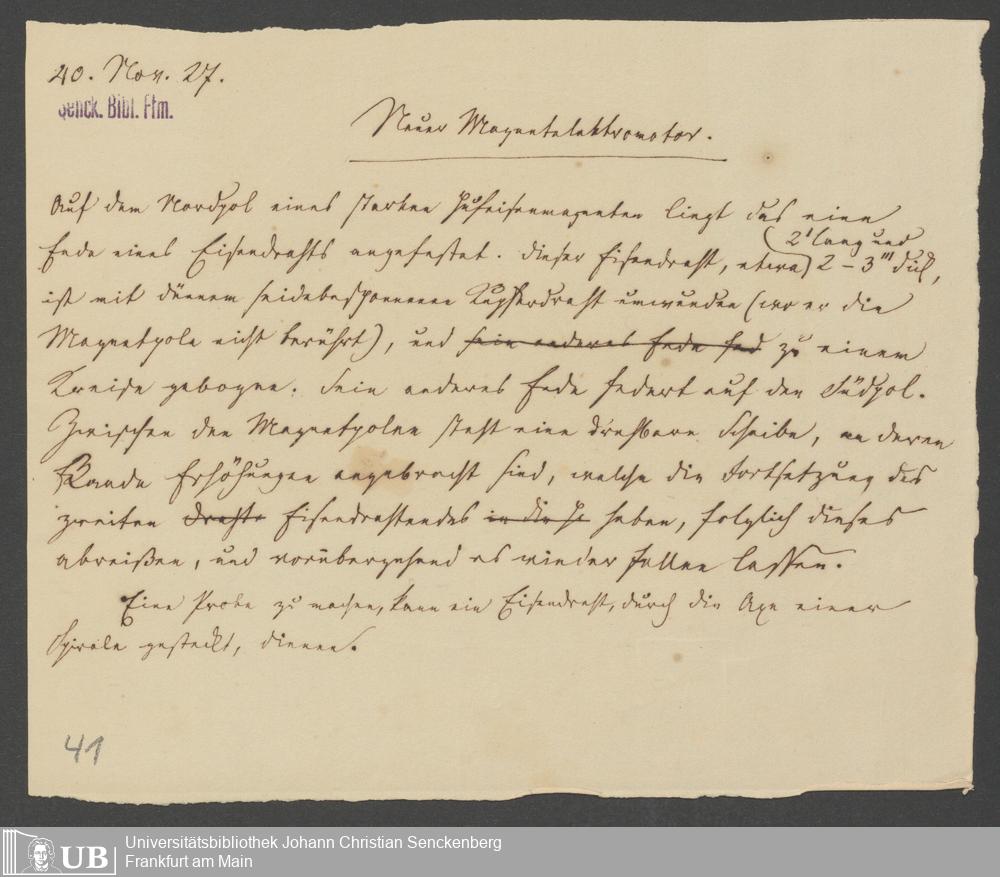 40. Nov. 27.
Senck. Bibl. Ffm.
Neuer Magnetelektromotor.
Auf dem Nordpol eines starken Hufeisenmagneten liegt das eine
(2' lang und
Ende eines Eisendrahts angefestet. Dieser Eisendraht, etwa) 2 – 3''' dick,
ist mit dünnem seidebesponnenen Kupferdraht umwunden (wo er die
Magnetpole nicht berührt), und sein anderes Ende fed zu einem
Kreise gebogen. Sein anderes Ende federt auf den Südpol.
Zwischen den Magnetpolen steht eine drehbare Scheibe, an deren
Rande Erhöhungen angebracht sind, welche die Fortsetzung des
zweiten Drahte Eisendrahtendes in die H heben, folglich dieses
abreißen, und vorübergehend es wieder fallen lassen.
Eine Probe zu machen, kann ein Eisendraht, durch die Axe einer
Spirale gesteckt, dienen.
41
UB
Universitätsbibliothek Johann Christian Senckenberg
Frankfurt am Main